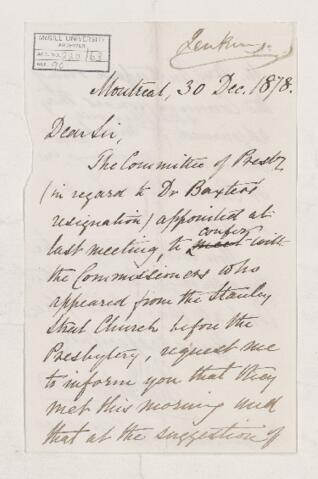 McGILL UNIVERSITY
ARCHIVES
ACC. NO.
REF.
Jenkins
Montreal, 30 Dec. 1878.
Dear Sir,
The Committee of Presby
(in regard to Dr Baxter's
resignation) appointed at
last meeting, to confer with
the Commissioners who
appeared from the Stanley
Street Church before the
Presbytery, request me
to inform you that they
met this morning and
that at the suggestion of